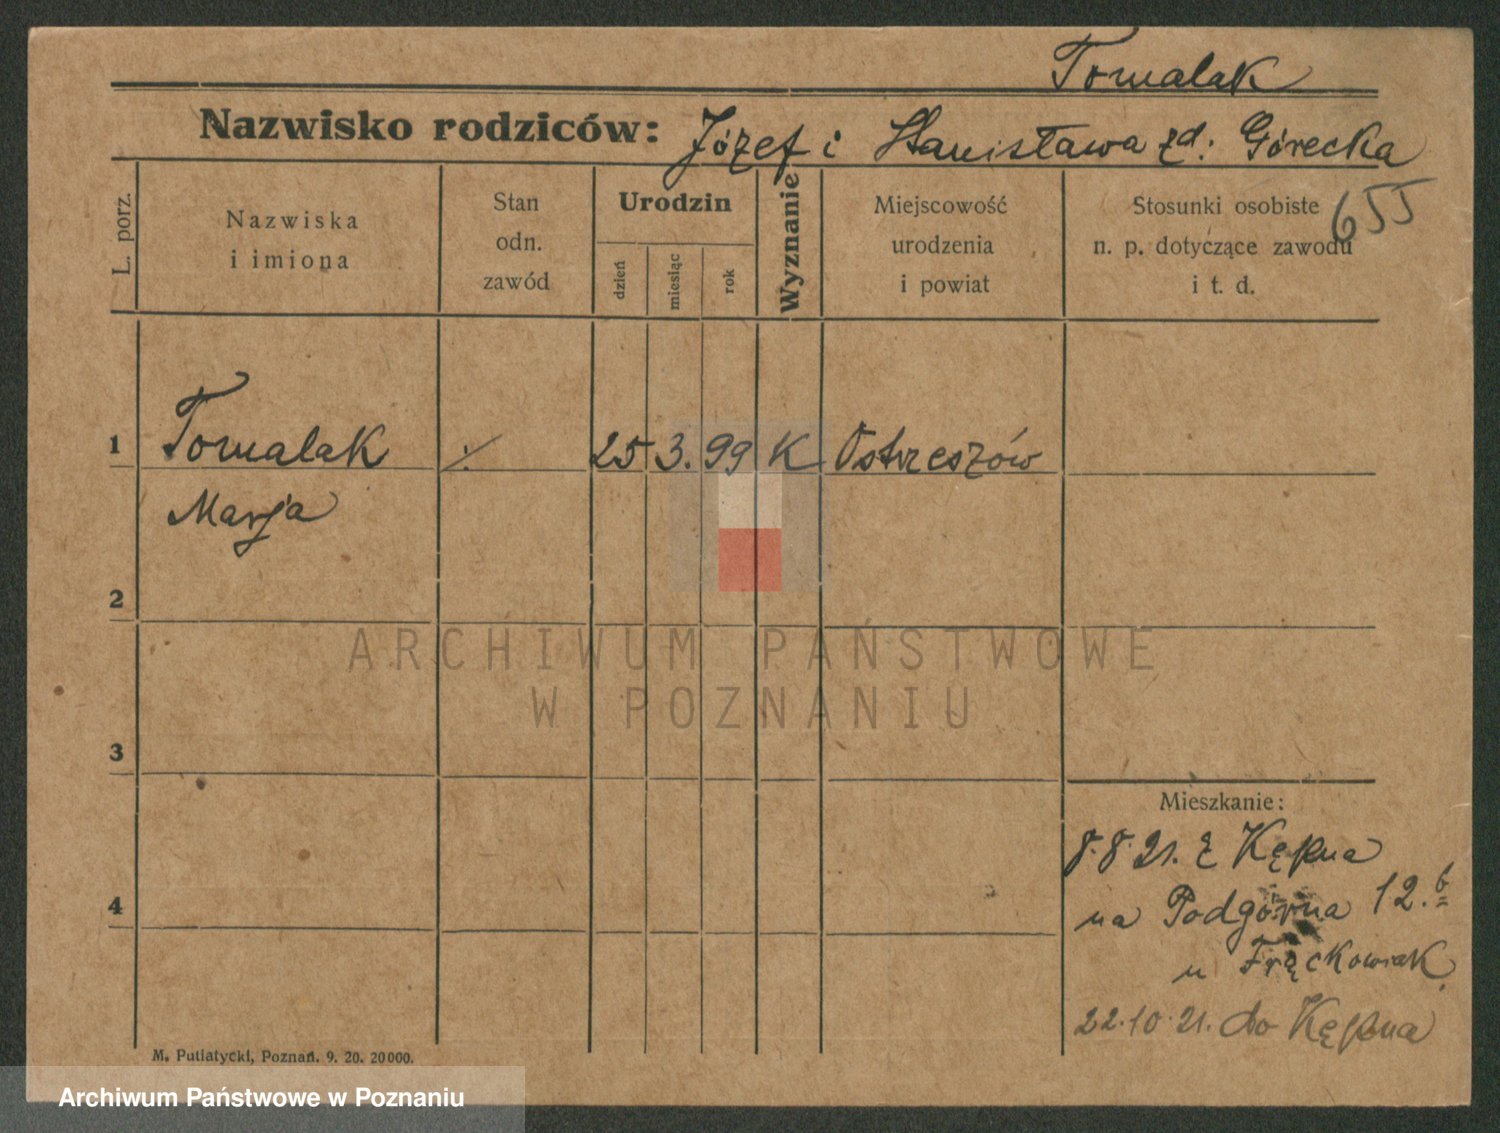 Tomalak
Nazwisko rodziców: Józef i Stanisława zd: Górecka
655
L. porz.
Nazwiska
i imiona
Stan
odn.
zawód
Urodzin
dzień
miesiąc
rok
Wyznanie
Miejscowość
urodzenia
i powiat
Stosunki osobiste
n. p. dotyczące zawodu
i t. d.
1 Tomalak ./. 25 3. 99 K Ostrzeszów
Marja
2
3
4
Mieszkanie:
8.8.21. z Kępna
na Podgórna 12.b
u Frąckowiak.
22.10.21. do Kępna
M. Putiatycki, Poznań. 9. 20. 20000.
ARCHIWUM PAŃSTWOWE
W POZNANIU
Archiwum Państwowe w Poznaniu